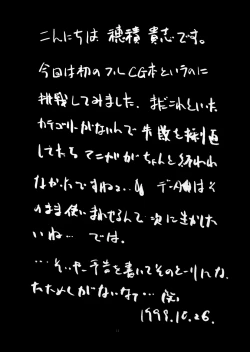 こんにちは 穂積 貴志です。
今回は初のフルCG本というのに
挑戦してみました。まだこれといった
カテゴリーがないんで 失敗を繰返し
してたら マンガがちゃんと終われ
なかったですねぇ… データはそ
のまま使いまわせるんで 次に生かした
いね… では。
…そいやー予告を書いてそのとーりにな
ったためしがないなァ…
1998.10.26.